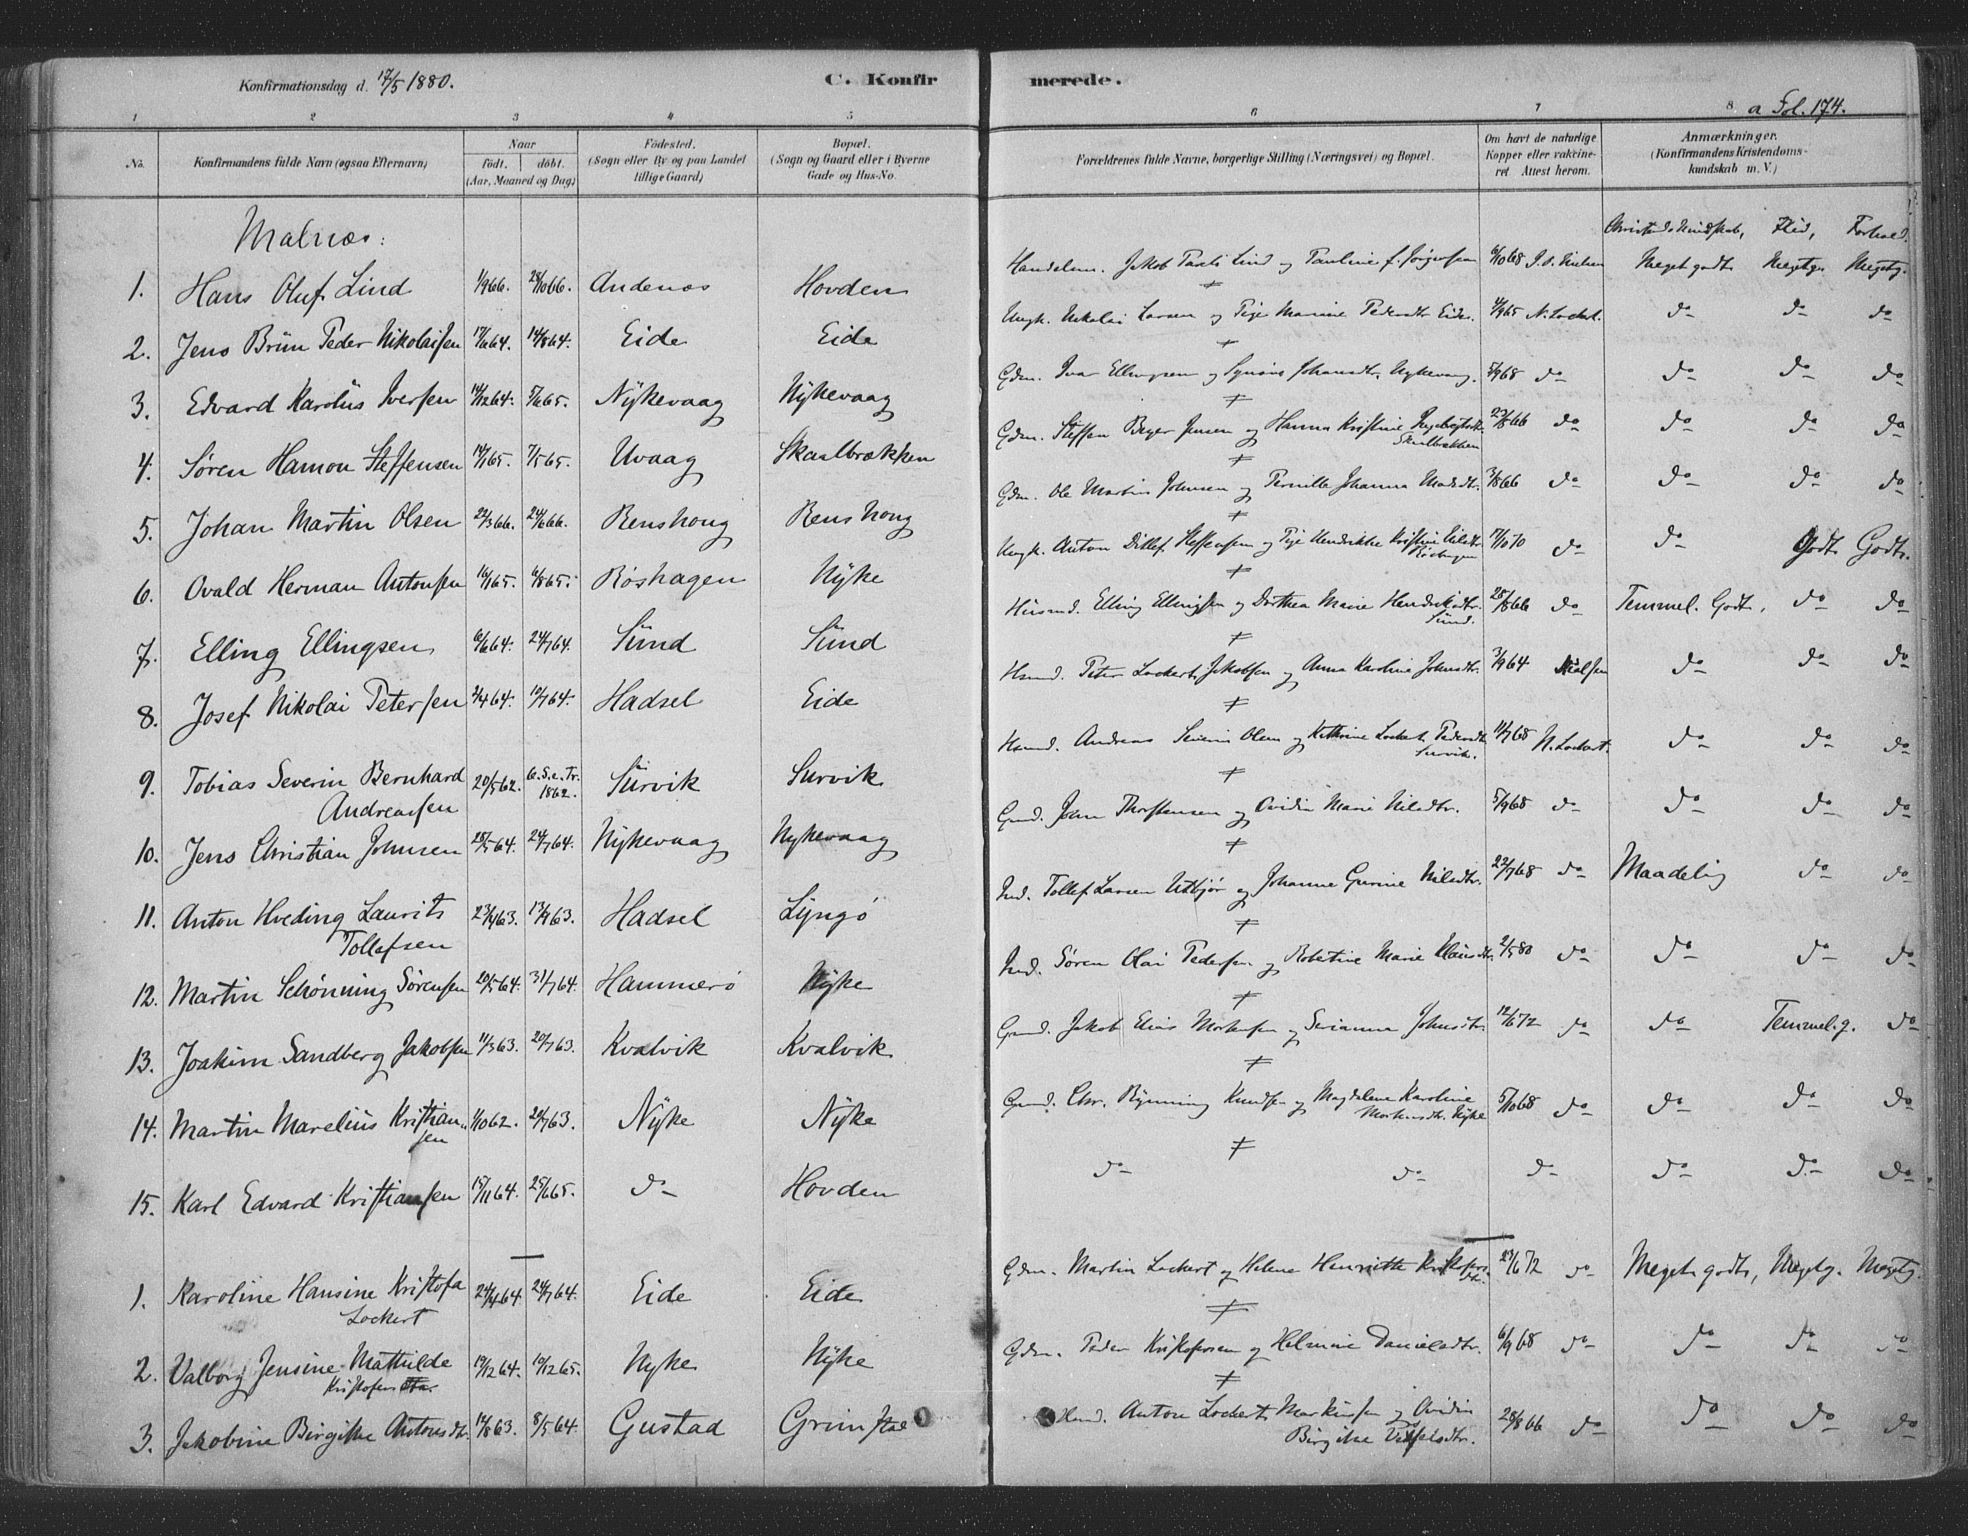 Konfirmationsdag d. 17/5 1880. C. Konfirmerede. a Fol. 174.
1 2 3 4 5 6 7 8.
No. Konfirmandens fulde Navn (ogsaa Efternavn) Naar födt. döbt. (Aar, Maaned og Dag) Födested. (Sogn eller By og paa Landet tillige Gaard) Bopæl. (Sogn og Gaard eller i Byerne Gade og Hus-No. Forældrenes fulde Navne, borgerlige Stilling (Næringsvei) og Bopæl. Om havt de naturlige Kopper eller vakcineret Attest herom. Anmærkninger. (Konfirmandens Kristendomskundskab m. V.)
Malnæs: Flid, Forhold.
1. Hans Oluf Lind 1/9 66. 28/10 66. Andenæs Hovden Handelsm. Jakob Lind og Pauline f. 6/10 68 Meget godt Megetg. Megetg.
2. Jens Brün Peder Nikolaisen 17/6 64. 14/8 64. Eide Eide Ungk. Nikolai Larsen og Marine Pedersdtr Eide. 4/9 65 N. Lockert. do do do
3. Edvard Karolius Iversen 14/12 64. 5/6 65. Nykevaag Nykevaag Gdm. Ivar Ellingsen og Johansdtr. Nykevaag. 5/9 68 do do do do
4. Søren Hamon Steffensen 14/1 65. 7/5 65. Uvaag Skaalbrækken Gdm. Steffen Beyer Jensen og Hanna Kristine Skaalbrækken 23/8 66 do do do do
5. Johan Martin Olsen 22/3 66. 24/6 66. Renshoug Renshoug Gdm. Ole Martin Johnsen og Pernille Johanna 3/8 66 do do do do
6. Ovald Herman Antonsen 16/1 65. 6/8 65. Røshagen Nyke Ungk. Anton Ditlef Steffensen og Hendrikke Kristine 17/10 70 do do Godt Godt.
7. Elling Ellingsen 6/6 64. 24/7 64. Sund Sund Husmd. Elling Ellingsen og Dorthea Marie Hendriksdtr. Sund. 28/8 66 do Temmel. Godt, do do
8. Josef Nikolai Petersen 2/4 64. 10/7 64. Hadsel Eide Hsmd. Peter Lockert Jakobsen og Anna Karoline Johnsdtr. 3/9 64 Nielsen do do do
9. Tobias Severin Bernhard Andreassen 20/5 62. 6. S. e. Tr. 1862. Survik Survik Hsmd. Andreas Severin Olsen og Kathrine Lockert Pedersdtr. Survik. 11/7 68 N. Lockert. do do do
10. Jens Christian Johnsen 28/5 64. 24/7 64. Nykevaag Nykevaag Gmd. John Thorstensen og Ovidia Marie Nilsdtr. 5/9 68 do do do do
11. Anton Hveding Laurits Tollefsen 23/4 63. 13/9 63. Hadsel Lyngø Ind. Tollef Larsen Utbjør og Johanne Gurine Nilsdtr. 22/7 68 do Maadelig do do
12. Martin Schönning Sörensen 20/5 64. 31/7 64. Hammerö Nyke Ind. Søren Olai Pedersen og Robertine Marie Klausdtr. 2/5 80 do do do do
13. Joakim Sandberg Jakobsen 11/3 63. 20/7 63. Kvalvik Kvalvik Gmd. Jakob Elias Mortensen og Serianna Johnsdtr. 12/6 72 do do Temmel. g. do
14. Martin Marelius Kristiansen 1/10 62. 20/7 63. Nyke Nyke Gmd. Chr. Rynning Knudsen og Magdalene Karoline Mortensdtr. Nyke 5/10 68 do do do do
15. Karl Edvard Kristiansen 15/11 64. 25/6 65. do Hovden do do do do do do
1. Karoline Hansine Kristofa Lockert 24/4 64. 24/7 64. Eide Eide Gdm. Martin Lockert og Helene Henriette 23/6 72 do Meget godt, Megetg. Megetg.
2. Valborg Jensine Mathilde Kristofers 19/12 64. 10/12 65. Nyke Nyke Gdm. Peder Kristofersen og Helmine Danielsdtr. 6/9 68 do do do do
3. Jakobine Birgitte Antonsdtr. 14/8 63. 8/5 64. Gustad Grimstad Hsmd. Anton Lockert Martinsen og Ovidia Birgitte 28/8 66 do do do do